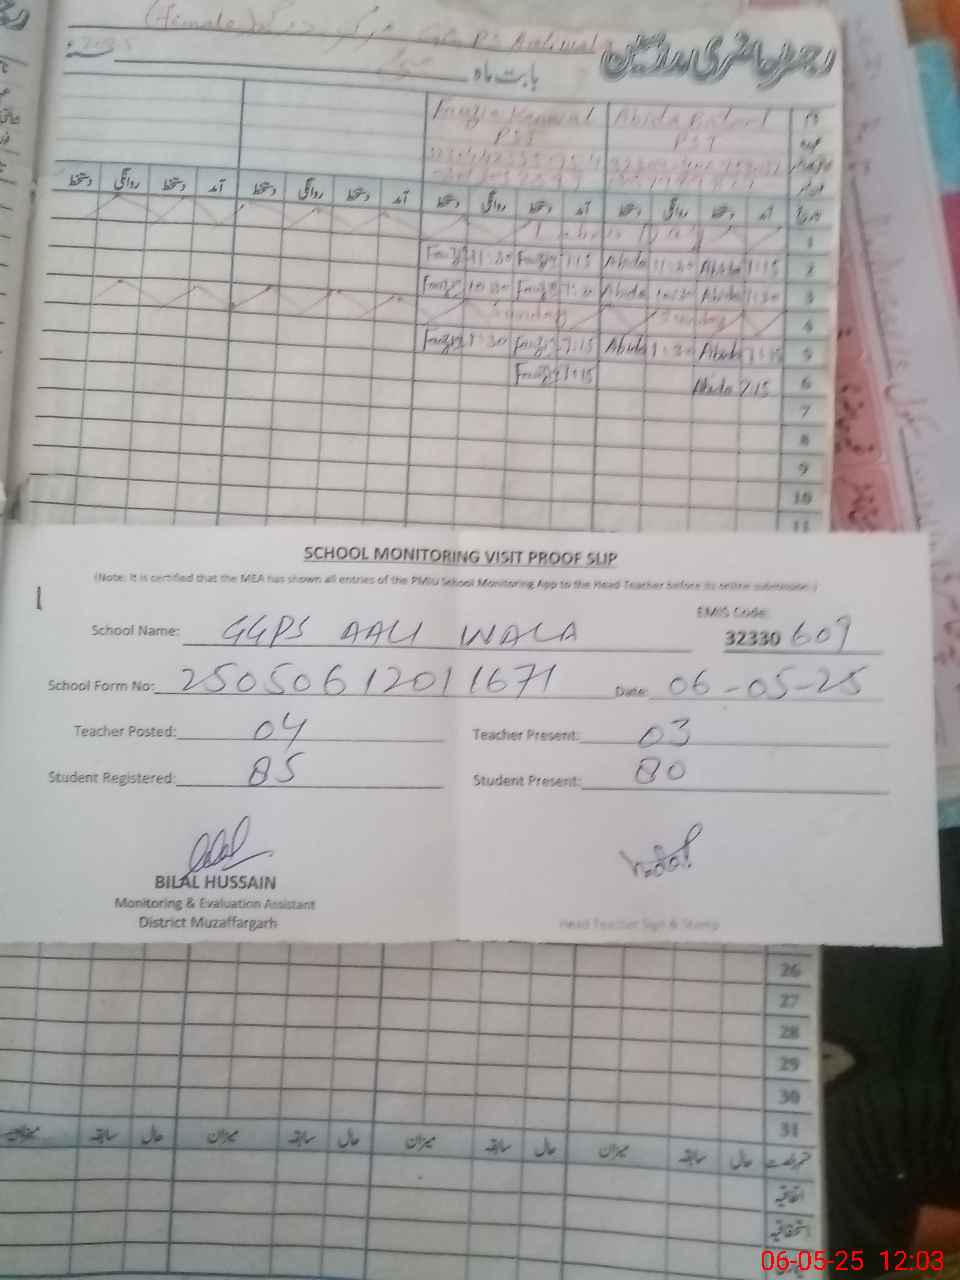 (Female)
رجسٹر حاضری مدرسین
بابت ماہ
2025
Fauzia Kanwal
Abida Batool
PST
PST
نمبر شمار آمد دستخط روانگی دستخط آمد دستخط روانگی دستخط آمد دستخط روانگی دستخط آمد دستخط روانگی دستخط
1 Labour Day
2 7:15 Abida 11:30 Abida 7:15 Fauzia 11:30 Fauzia
3 7:30 Abida 10:30 Abida 7:30 Fauzia 10:30 Fauzia
4 Sunday Sunday
5 7:15 Abida 1:30 Abida 7:15 Fauzia 1:30 Fauzia
6 7:15 Abida 7:15 Fauzia
7
8
9
10
11
SCHOOL MONITORING VISIT PROOF SLIP
(Note: It is certified that the MEA has shown all entries of the PMIU School Monitoring App to the Head Teacher before its online submission.)
School Name: GGPS AALI WALA
EMIS Code:
32330 609
School Form No: 25050612011671 Date: 06-05-25
Teacher Posted: 04 Teacher Present: 03
Student Registered: 85 Student Present: 80
BILAL HUSSAIN
Monitoring & Evaluation Assistant
District Muzaffargarh
Head Teacher Sign & Stamp
26
27
28
29
30
31
قسم رخصت حال سابقہ میزان حال سابقہ میزان حال سابقہ میزان حال سابقہ
اتفاقیہ
استحقاقیہ
06-05-25 12:03